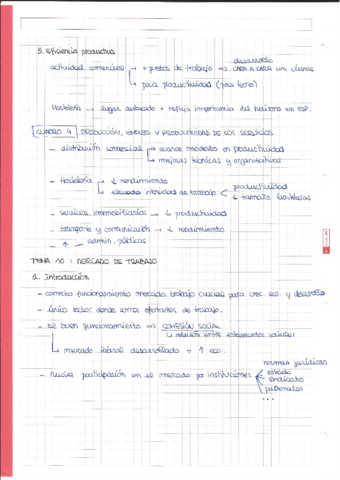 5. Eficiencia productiva
desarrollo
actividad comercial → + puestos de trabajo → CARA A CARA con cliente
→ poca productividad (poca tecno)
Hostelería → lugar destacado + refleja importancia del turismo en ESP.
CUADRO 4 PRODUCCIÓN, EMPLEO Y PRODUCTIVIDAD DE LOS SERVICIOS
- distribución comercial → avance modesto en productividad
→ mejoras técnicas y organizativas
- Hostelería → ↓ rendimiento
→ elevada intensidad de trabajo < productividad
↓ tamaño
- servicios inmobiliarios → ↓ productividad
- transporte y comunicación → ↓ rendimiento
- ↑ admin. públicas
TEMA 10: MERCADO DE TRABAJO
1. Introducción
- correcto funcionamiento mercado trabajo crucial para crec. eco. y desarrollo
- único sector donde somos ofertantes de trabajo.
- El buen funcionamiento → COHESIÓN SOCIAL
↳ relación entre estamentos sociales
↳ mercado laboral desarrollado = ↑ eco.
normas jurídicas
- nueva participación en el mercado por instituciones
sindicatos
patronales
...